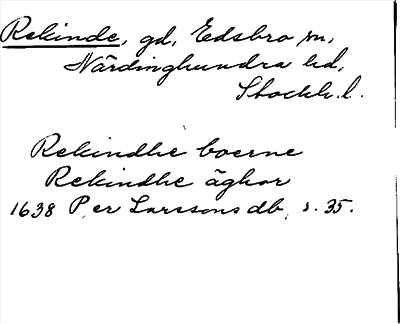 Rekinde, gd, Edsbro sn,
Närdinghundra hd,
Stockh. l.
Rekindhe boerne
Rekindhe äghor
1638 Per Larssons db, s. 35.